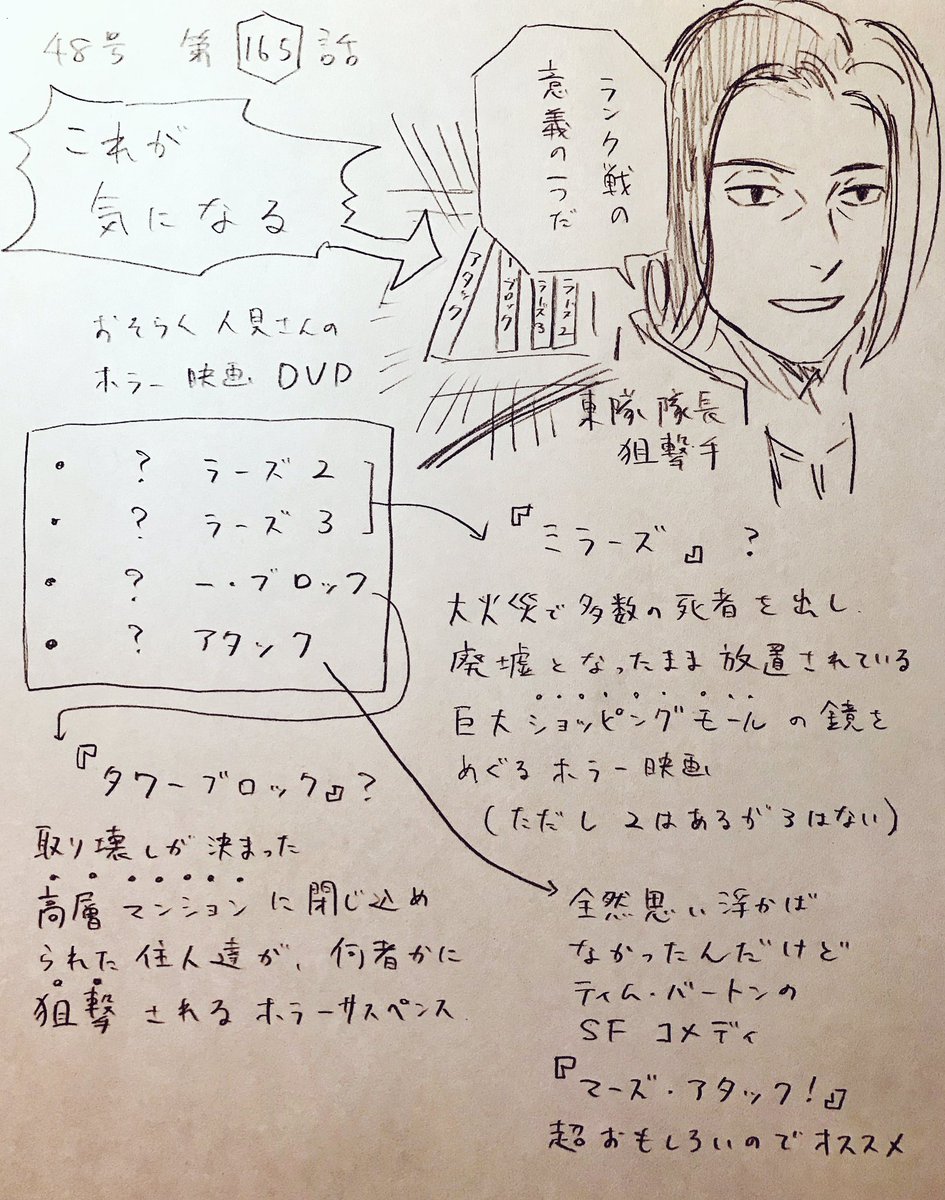 48号 第165話
これが
気になる
ランク戦の
意義の一つだ
アタック
ー・ブロック
ラーズ3
ラーズ2
おそらく人見さんの
ホラー映画DVD
東隊隊長
狙撃手
• ? ラーズ2
• ? ラーズ3
• ? ー・ブロック
• ? アタック
『ミラーズ』?
大火災で多数の死者を出し、
廃墟となったまま放置されている
巨大ショッピングモールの鏡を
めぐるホラー映画
(ただし2はあるが3はない)
『タワーブロック』?
取り壊しが決まった
高層マンションに閉じ込め
られた住人達が、何者かに
狙撃されるホラーサスペンス
全然思い浮かば
なかったんだけど
ティム・バートンの
SFコメディ
『マーズ・アタック!』
超おもしろいのでオススメ